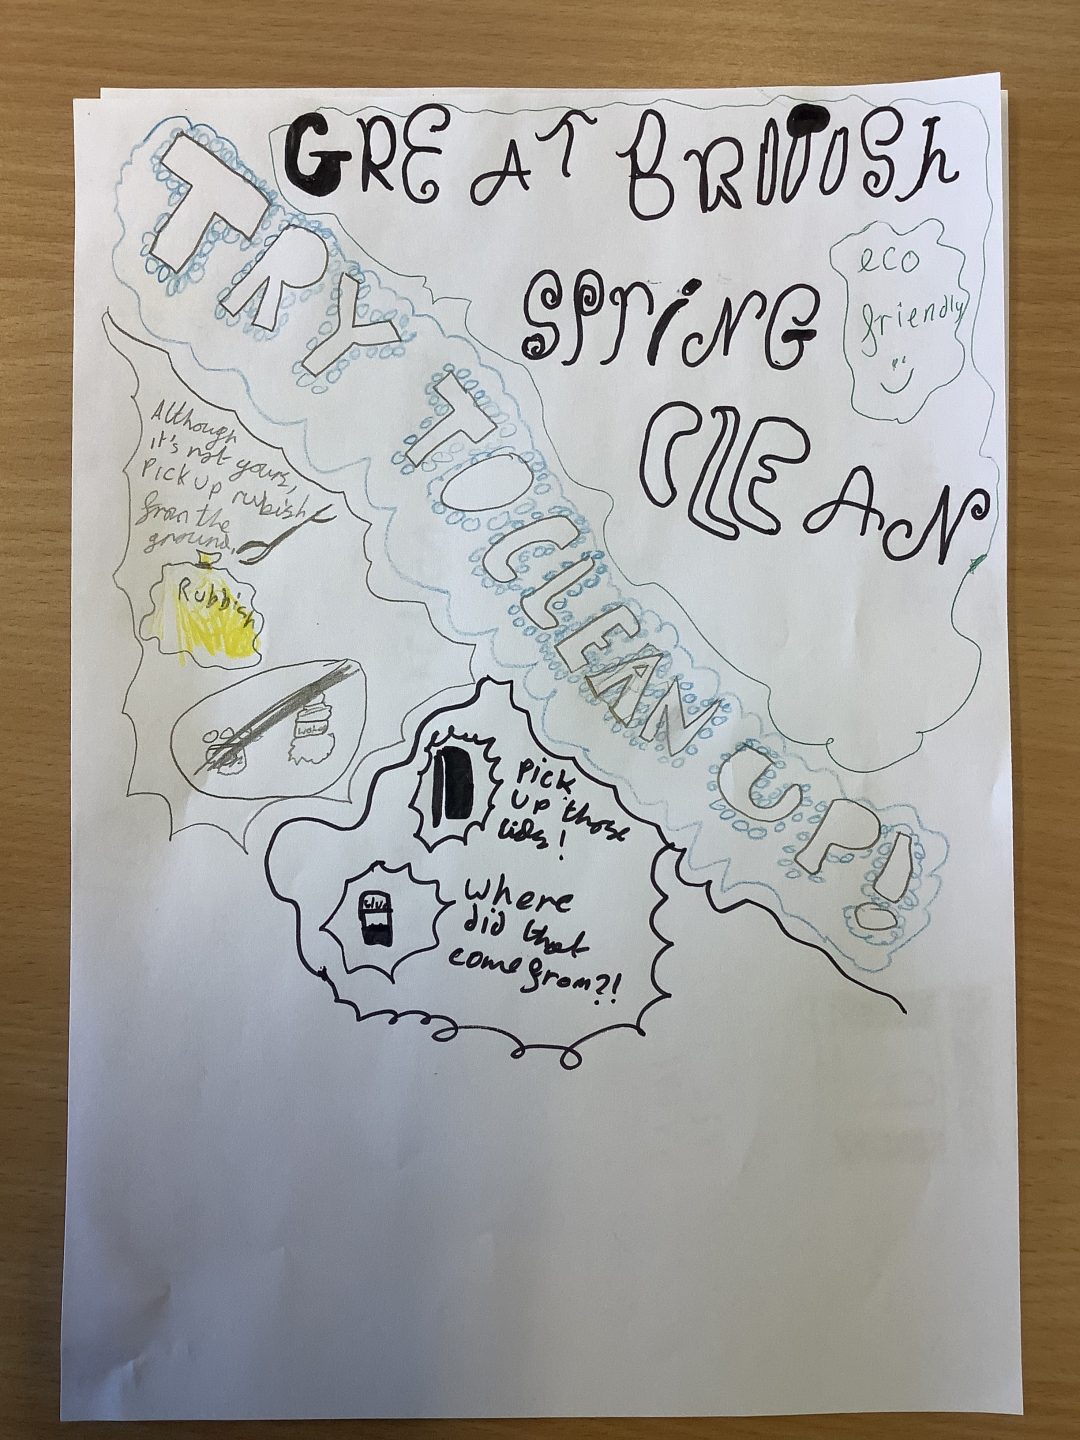 GREAT BRITISH
SPRING
CLEAN
eco
friendly
TRY TO CLEAN UP!
Although
it's not yours,
Pick up rubish
from the
ground.
Rubbish
Pick
up those
lids!
Glue
where
did that
come from?!